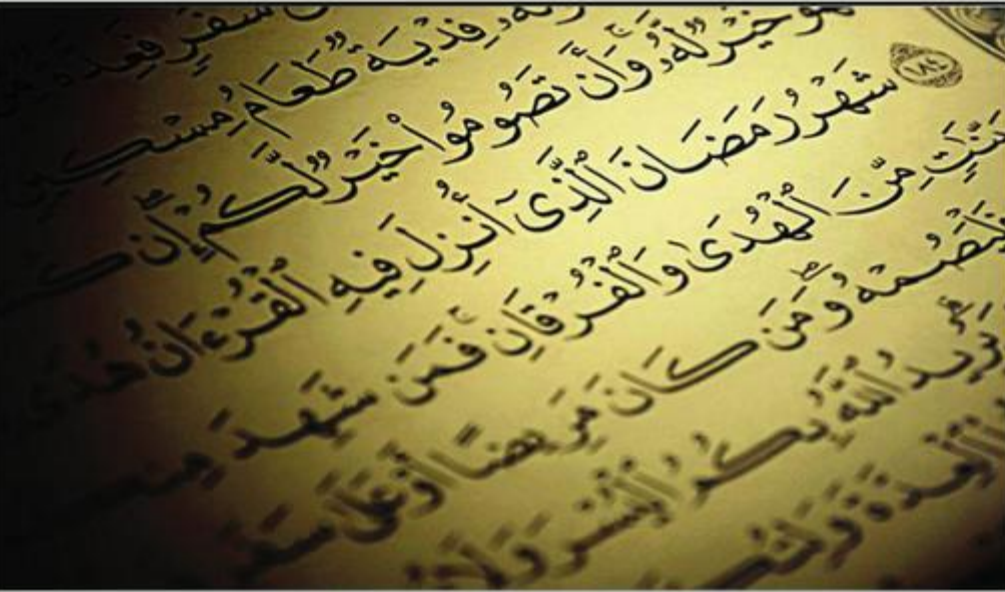 سَفَرٍ فَعِدَّةٌ
فِدْيَةٌ طَعَامُ مِسْكِينٍ
هُوَ خَيْرٌ لَّهُۥ وَأَن تَصُومُوا۟ خَيْرٌ لَّكُمْ إِن
١٨٤ شَهْرُ رَمَضَانَ ٱلَّذِىٓ أُنزِلَ فِيهِ ٱلْقُرْءَانُ هُدًى
مِّنَ ٱلْهُدَىٰ وَٱلْفُرْقَانِ فَمَن شَهِدَ
فَلْيَصُمْهُ وَمَن كَانَ مَرِيضًا أَوْ عَلَىٰ سَفَرٍ
يُرِيدُ ٱللَّهُ بِكُمُ ٱلْيُسْرَ وَلَا
ٱلْعِدَّةَ